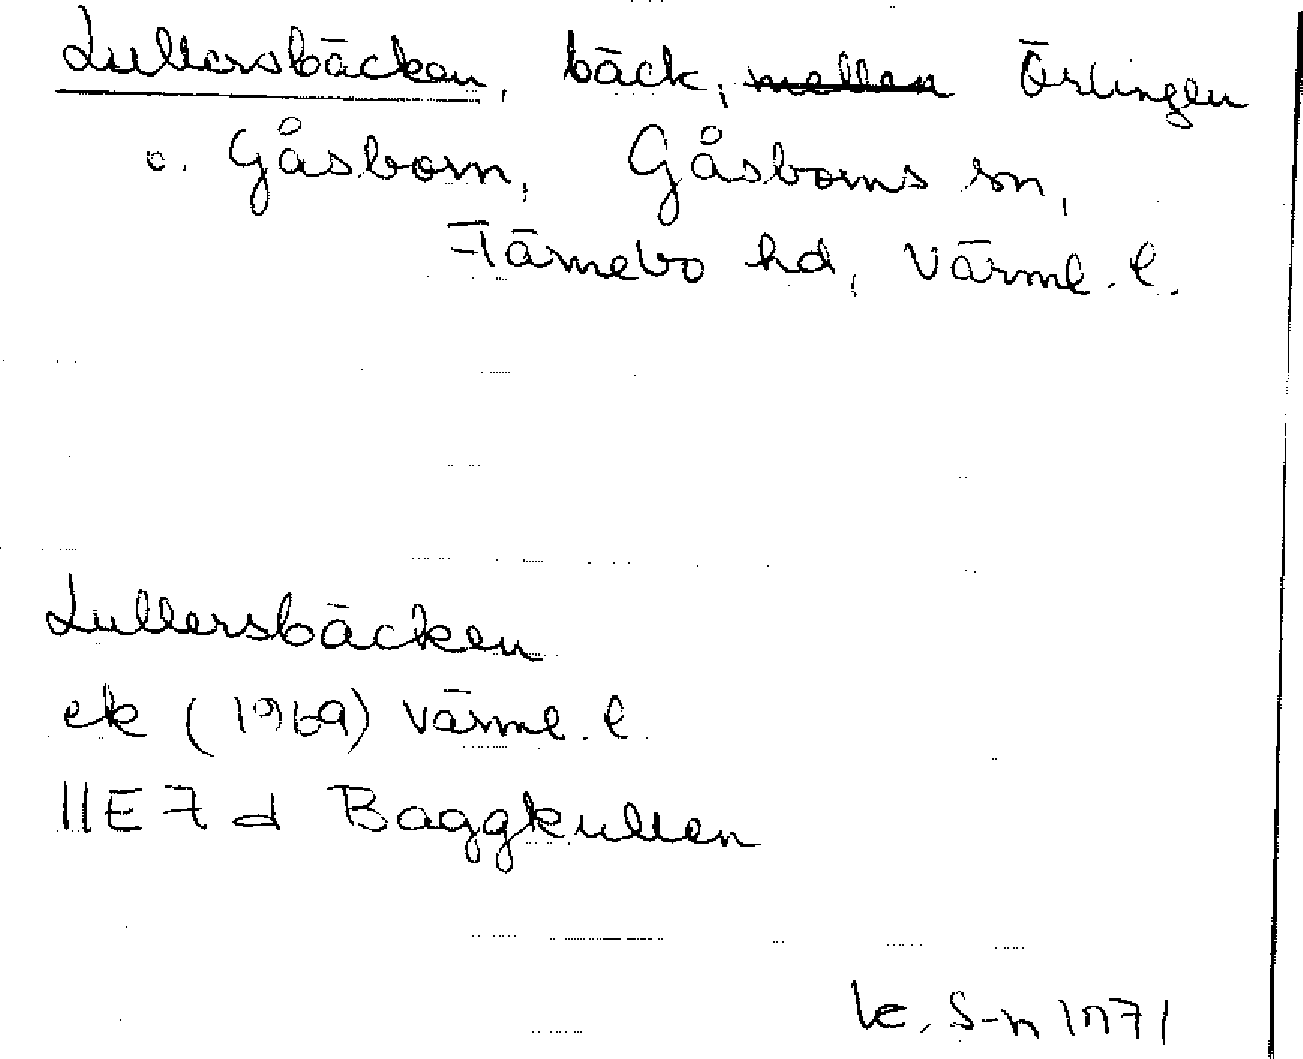 Lullersbäcken, bäck, mellan Örlingen
o. Gåsborn, Gåsborns sn,
Färnebo hd, Värml. l.
Lullersbäcken
ek (1969) Värml. l.
11E 7 d Baggkullen
k. S-n 1971